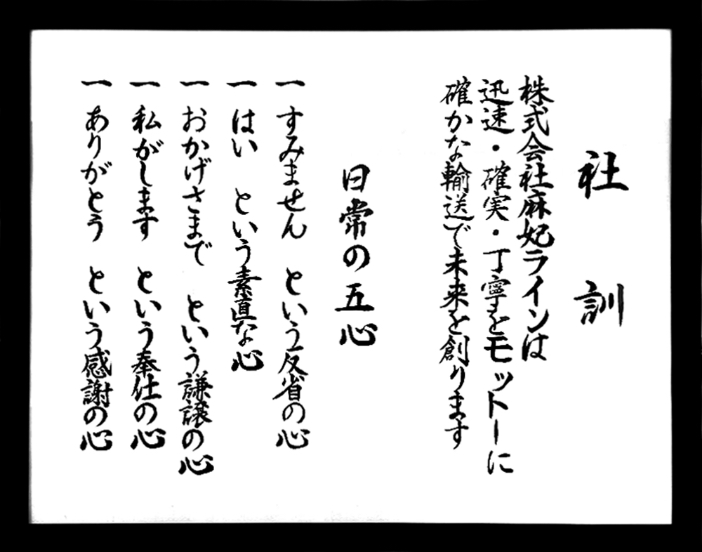 社訓
株式会社麻妃ラインは
迅速・確実・丁寧をモットーに
確かな輸送で未来を創ります
日常の五心
一 すみません という反省の心
一 はい という素直な心
一 おかげさまで という謙譲の心
一 私がします という奉仕の心
一 ありがとう という感謝の心